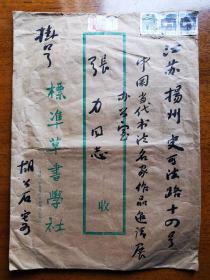 江苏扬州史可法路十四号
中国当代书法名家作品邀请展
办公室
张力同志
收
挂号
標準草書學社
胡公石寄